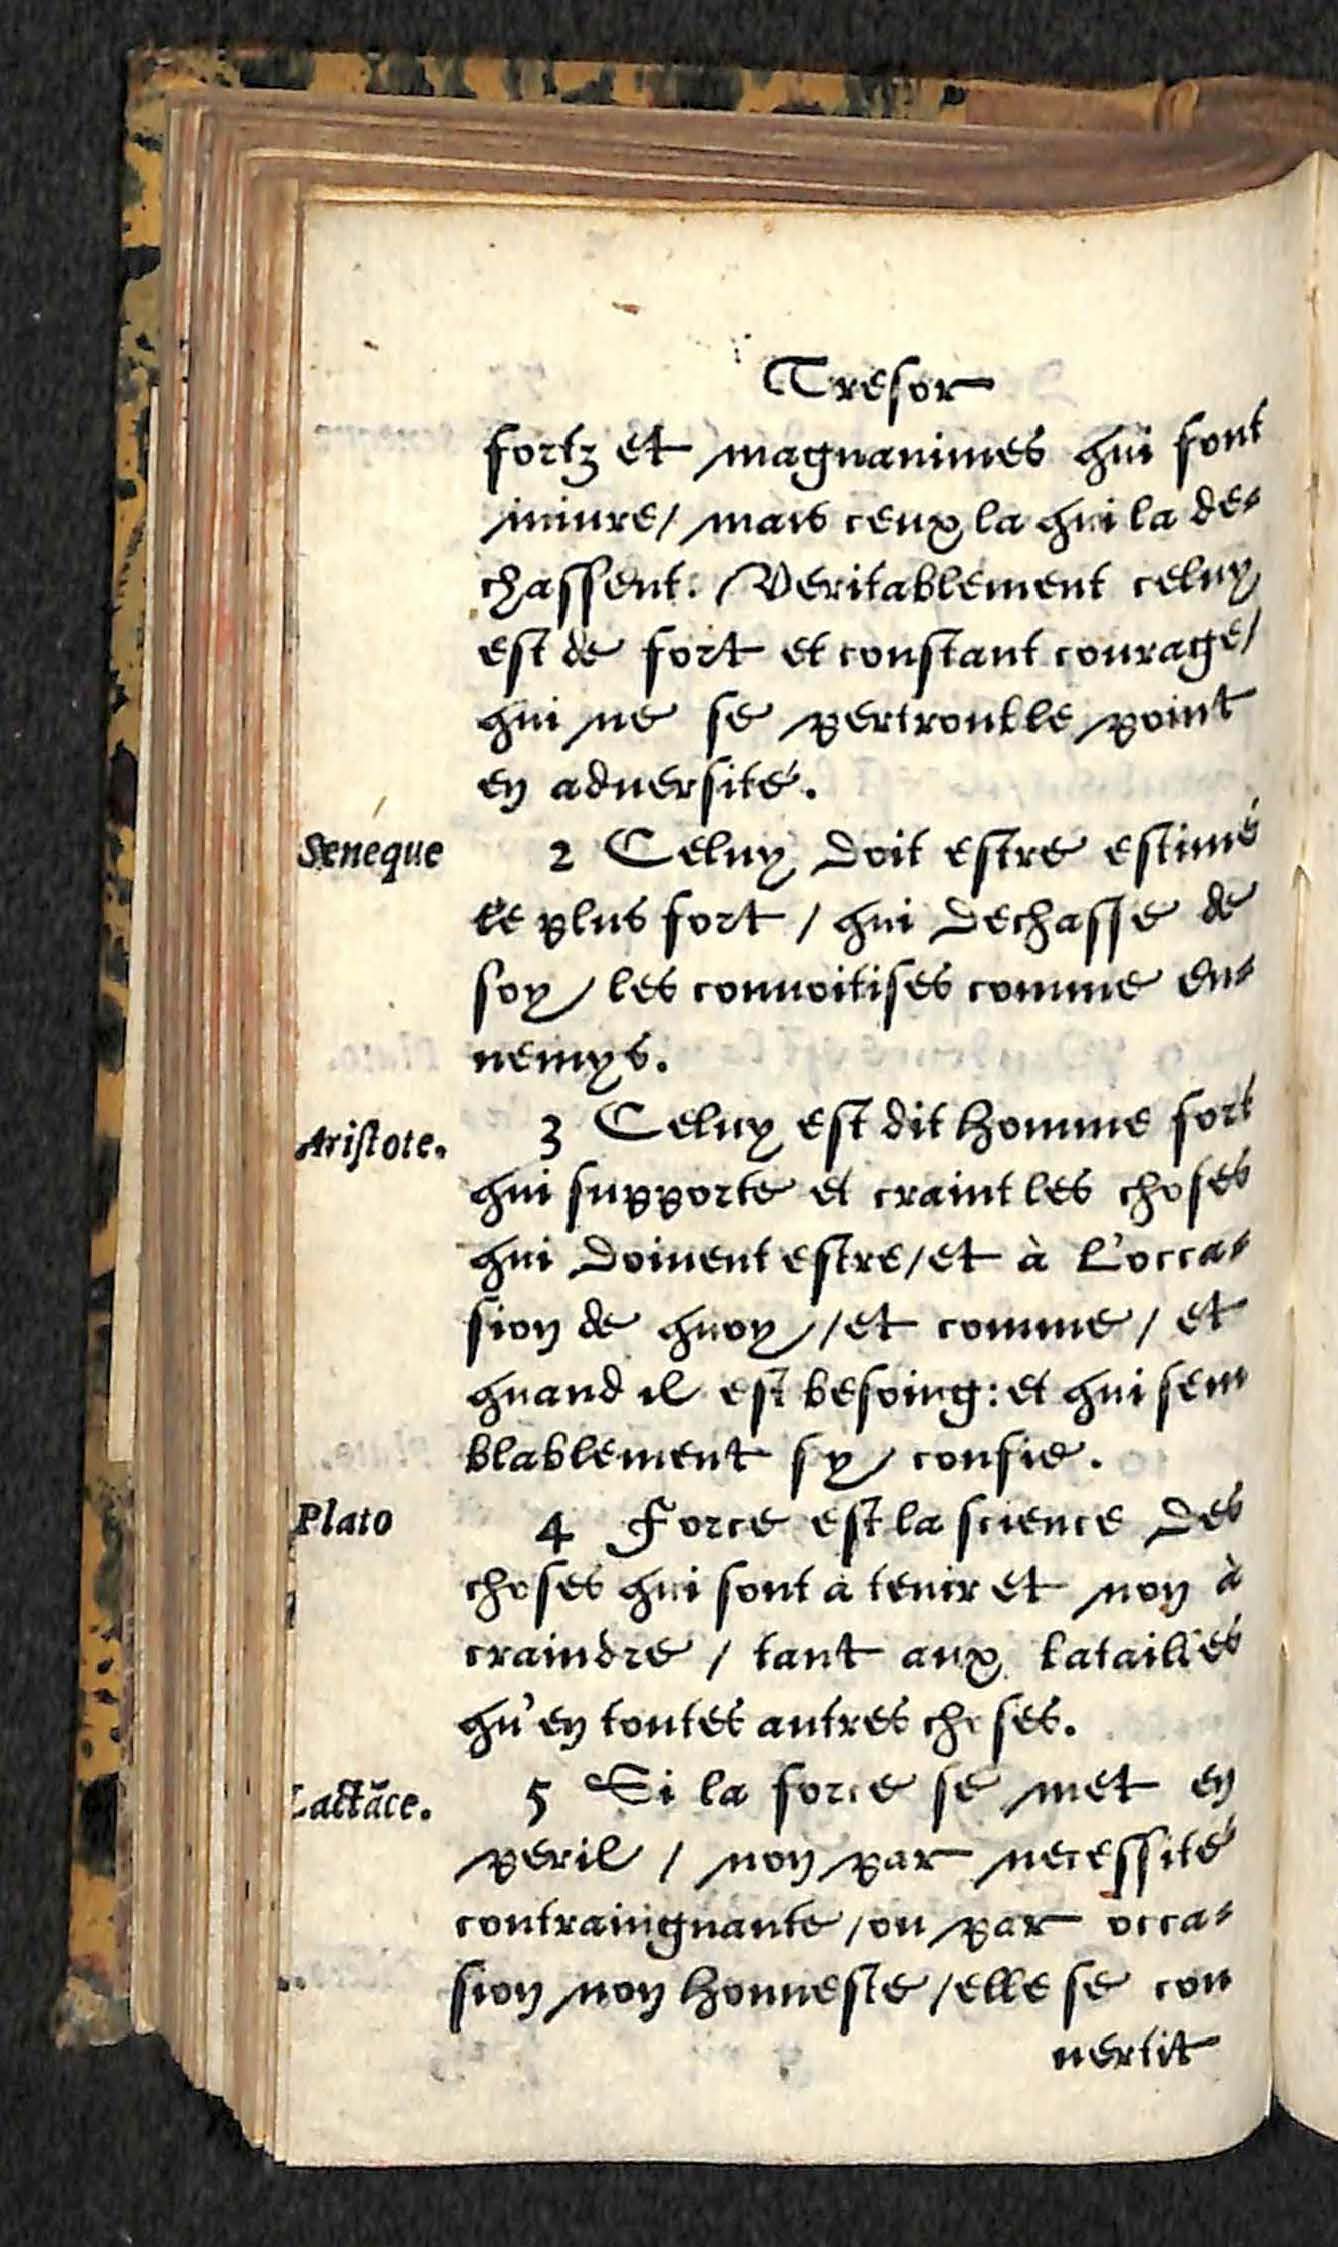 Tresor
fortz et magnanimes qui font
iniure/ mais ceux la qui la de-
chassent. Veritablement celuy
est de fort et constant courage/
qui ne se pertroulle point
en aduersité.
Seneque
2 Celuy doit estre estimé
le plus fort / qui dechasse de
soy / les conuoitises comme en-
nemys.
Aristote.
3 Celuy est dit homme fort
qui supporte et craint les choses
qui doiuent estre/et à l'occa-
sion de quoy //et comme / et
quand il est besoing: et qui sem
blablement sy / confie.
Plato
4 Force est la science des
choses qui sont à tenir et non à
craindre / tant aux batailles
qu'en toutes autres choses.
Lactāce.
5 Si la force se met en
peril / non par necessité
contraingnante /ou par occa-
sion non honneste /elle se con
uertit